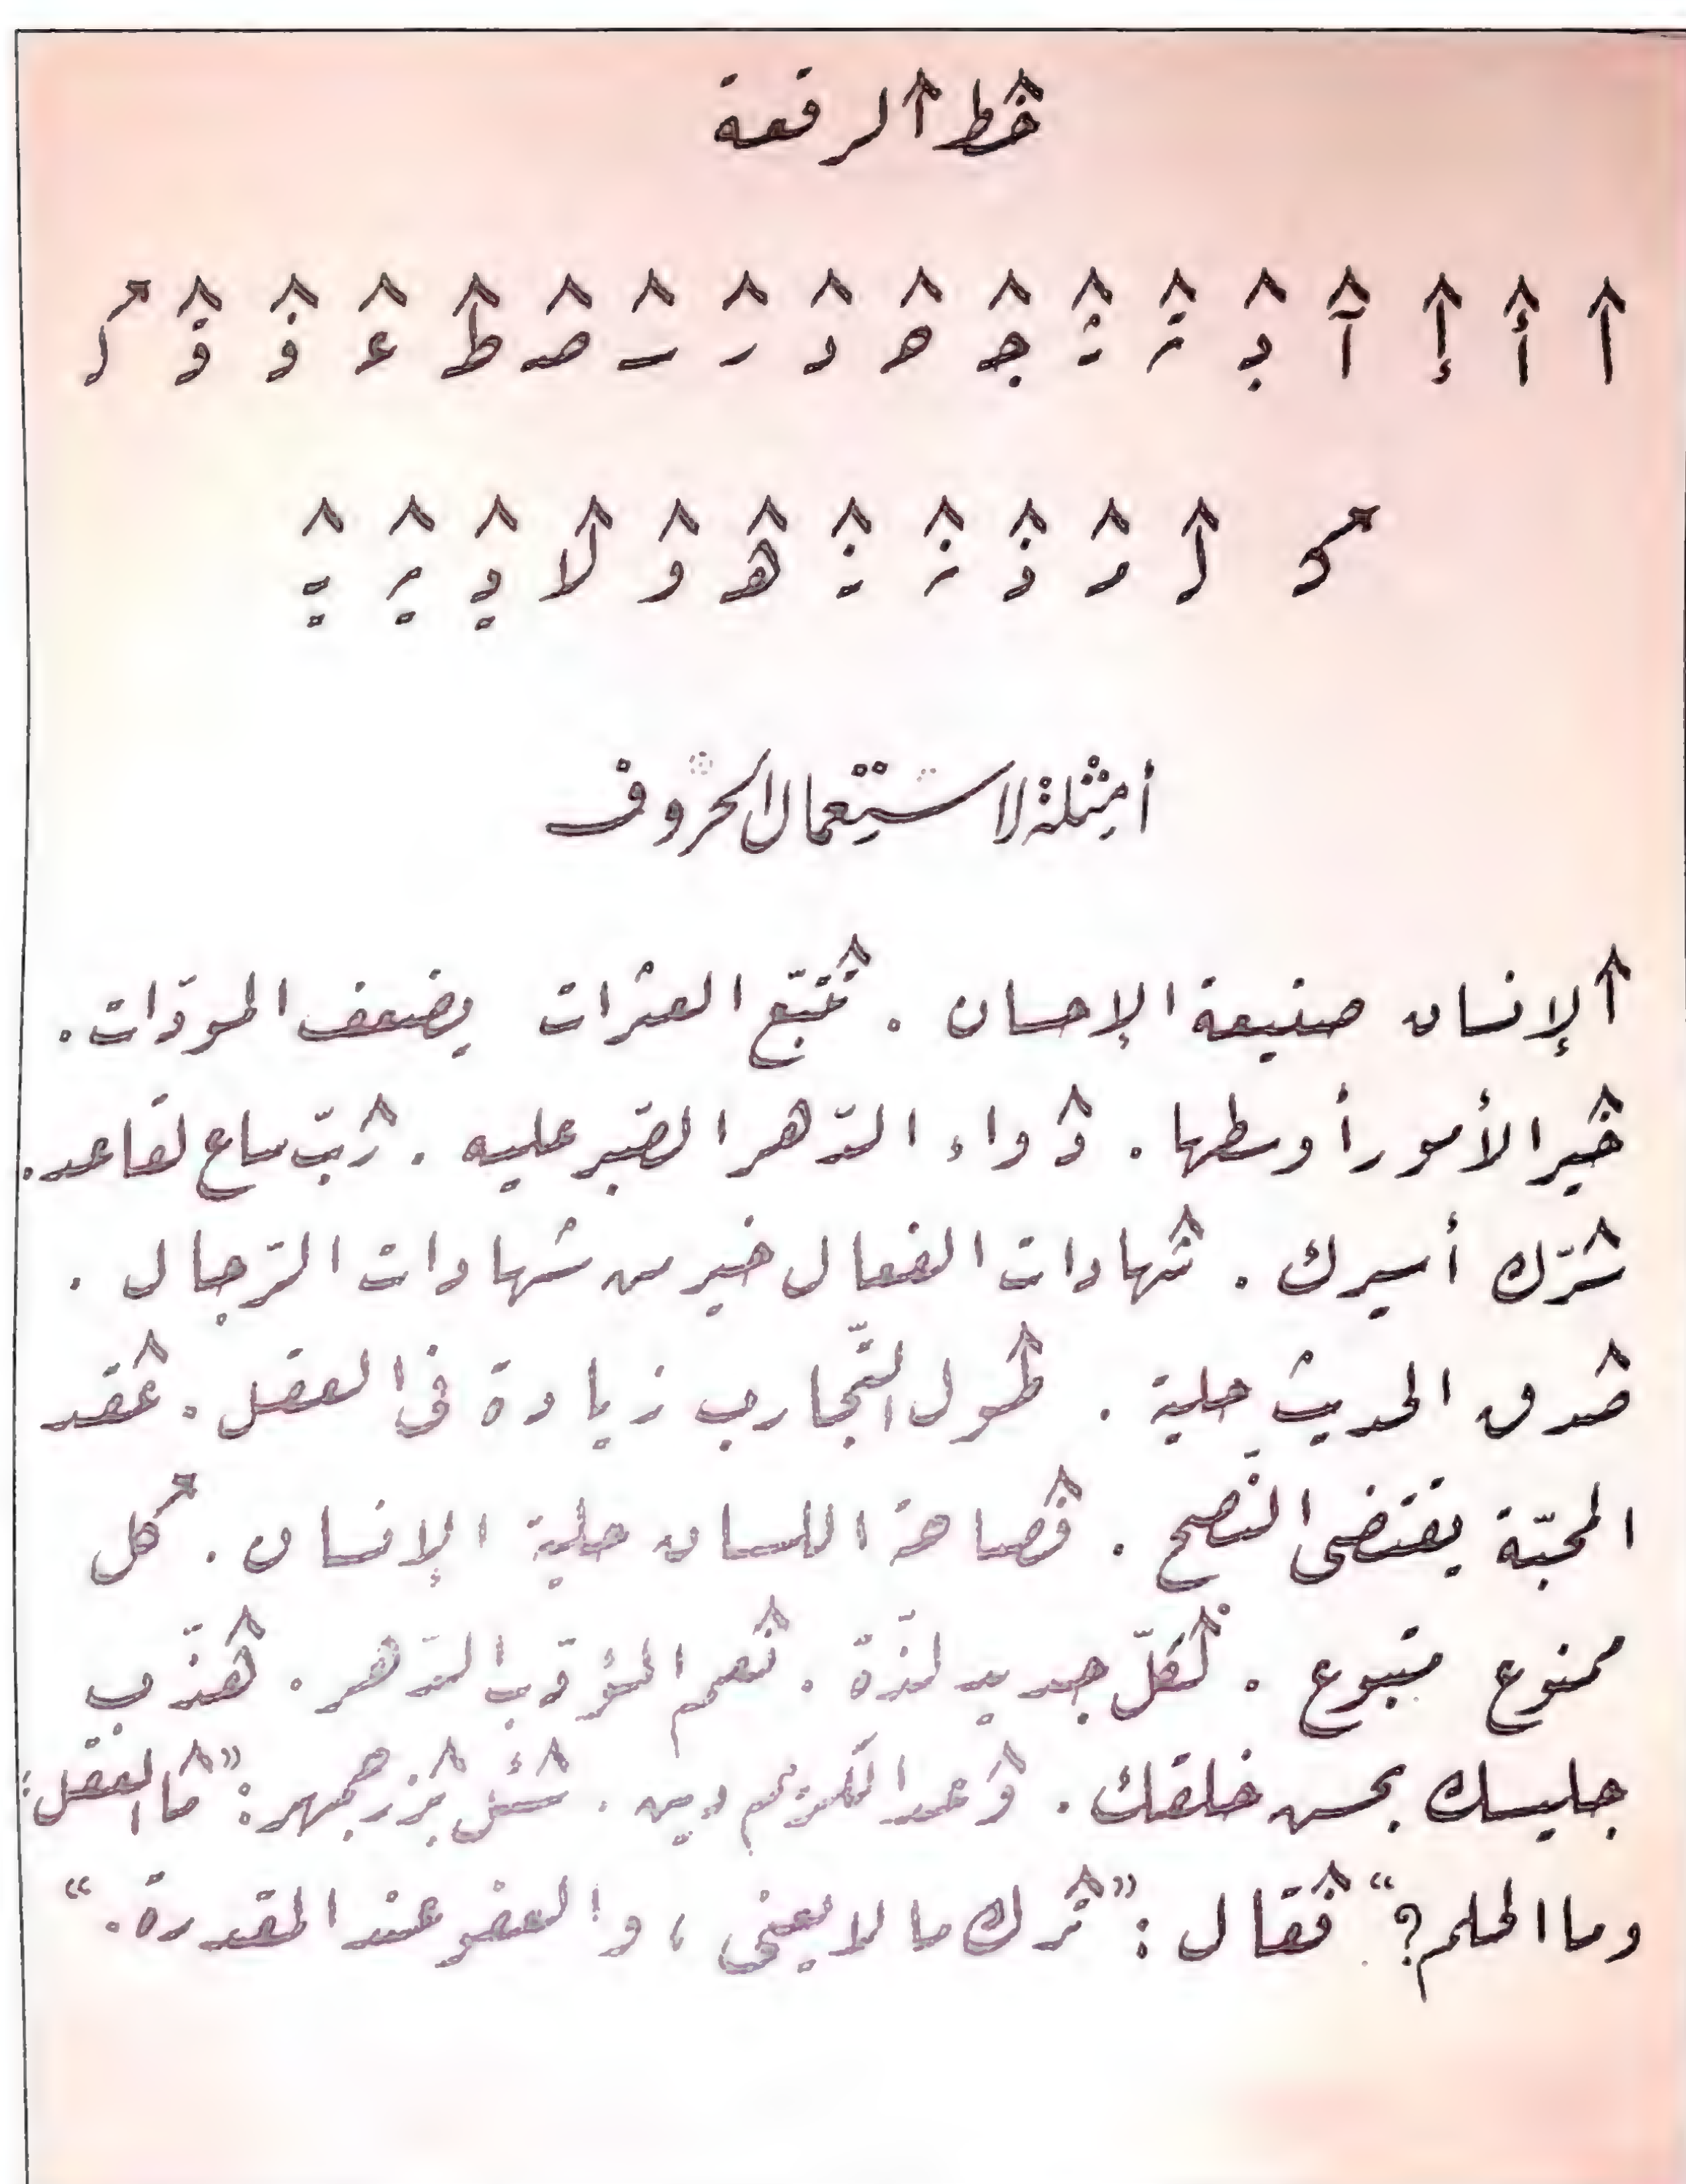 خط الرقعة
ا أ إ آ بـ تـ ثـ جـ حـ د ر سـ صـ ط عـ فـ قـ ك
كـ لـ مـ نـ نـ نـ هـ و لا يـ يـ يـ
أمثلة لاستعمال الحروف
الإنسان صنيعة الإحسان . تتبّع العثرات يضعف المودّات .
خير الأمور أوسطها . دواء الدّهر الصّبر عليه . ربّ ساع لقاعد .
سرّك أسيرك . شهادات الفعال خير من شهادات الرّجال .
صدق الحديث حلية . طول التّجارب زيادة في العقل . عقد
المحبّة يقتضى النّصح . فصاحة اللسان حلية الإنسان . كل
ممنوع متبوع . لكلّ جديد لذّة . نعم المؤدّب الدّهر . هذّب
جليسك بحسن خلقك . وعد الكريم دين . سئل بزرجمهر : ”ما العقل؛
وما الحلم؟“ فقال : ”ترك ما لا يعنى ، والعفو عند المقدرة .“